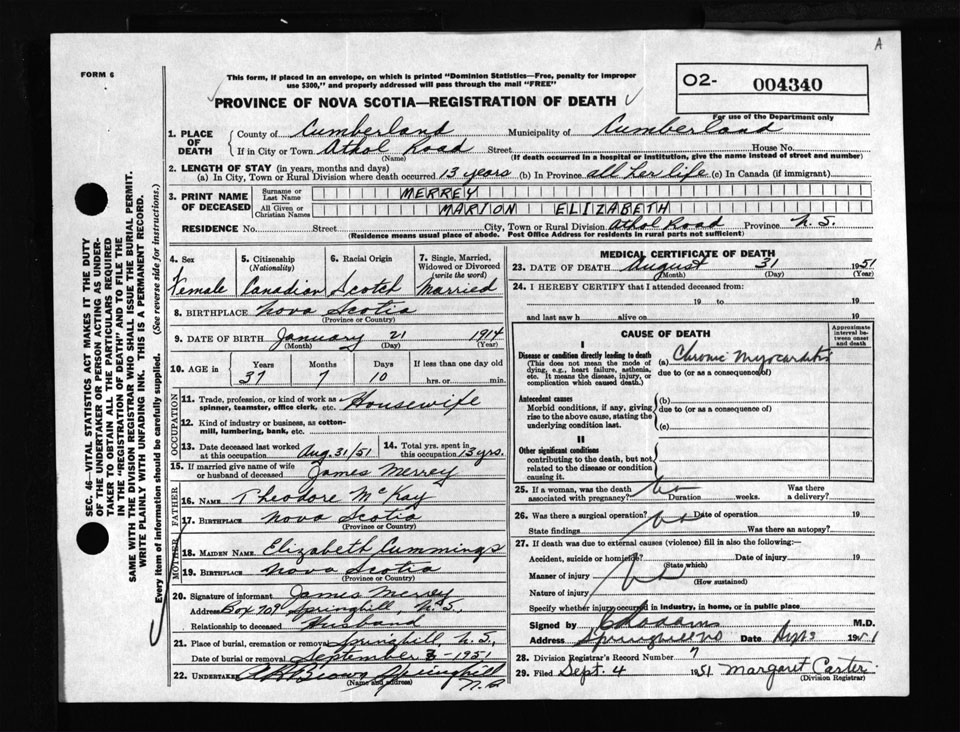 A
FORM 6
This form, if placed in an envelope, on which is printed "Dominion Statistics—Free, penalty for improper
use $300," and properly addressed will pass through the mail "FREE"
PROVINCE OF NOVA SCOTIA—REGISTRATION OF DEATH
O2- 004340
For use of the Department only
1. PLACE OF DEATH
County of Cumberland Municipality of Cumberland
If in City or Town Athol Road Street House No.
(Name) (If death occurred in a hospital or institution, give the name instead of street and number)
2. LENGTH OF STAY (in years, months and days)
(a) In City, Town or Rural Division where death occurred 13 years (b) In Province all her life (c) In Canada (if immigrant)
3. PRINT NAME OF DECEASED
Surname or Last Name MERREY
All Given or Christian Names MARION ELIZABETH
RESIDENCE No. Street City, Town or Rural Division Athol Road Province N.S.
(Residence means usual place of abode. Post Office Address for residents in rural parts not sufficient)
4. Sex Female
5. Citizenship (Nationality) Canadian
6. Racial Origin Scotch
7. Single, Married, Widowed or Divorced (write the word) Married
8. BIRTHPLACE Nova Scotia
(Province or Country)
9. DATE OF BIRTH January 21 1914
(Month) (Day) (Year)
10. AGE in Years 37 Months 7 Days 10 If less than one day old hrs. or min.
OCCUPATION
11. Trade, profession, or kind of work as spinner, teamster, office clerk, etc. Housewife
12. Kind of industry or business, as cotton-mill, lumbering, bank, etc.
13. Date deceased last worked at this occupation Aug. 31/51
14. Total yrs. spent in this occupation 13 yrs.
15. If married give name of wife or husband of deceased James Merrey
FATHER
16. NAME Theodore McKay
17. BIRTHPLACE Nova Scotia
(Province or Country)
MOTHER
18. MAIDEN NAME Elizabeth Cummings
19. BIRTHPLACE Nova Scotia
(Province or Country)
20. Signature of informant James Merrey
Address Box 709 Springhill, N.S.
Relationship to deceased Husband
21. Place of burial, cremation or removal Springhill N.S.
Date of burial or removal September 3-1951
22. UNDERTAKER Brown Springhill
(Name and address)
MEDICAL CERTIFICATE OF DEATH
23. DATE OF DEATH August 31 1951
(Month) (Day) (Year)
24. I HEREBY CERTIFY that I attended deceased from:
19 to 19
and last saw h alive on 19
CAUSE OF DEATH
Approximate interval between onset and death
I
Disease or condition directly leading to death (a) Chronic Myocarditis
(This does not mean the mode of dying, e.g., heart failure, asthenia, etc. It means the disease, injury, or complication which caused death.)
due to (or as a consequence of)
Antecedent causes
Morbid conditions, if any, giving rise to the above cause, stating the underlying condition last.
(b)
due to (or as a consequence of)
(c)
II
Other significant conditions
contributing to the death, but not related to the disease or condition causing it.
25. If a woman, was the death associated with pregnancy? No Duration weeks. Was there a delivery?
26. Was there a surgical operation? No Date of operation 19
State findings Was there an autopsy?
27. If death was due to external causes (violence) fill in also the following:—
Accident, suicide or homicide? Date of injury 19
(State which)
Manner of injury No
(How sustained)
Nature of injury
Specify whether injury occurred in industry, in home, or in public place
Signed by M.D.
Address Springhill NS Date Sept 3 1951
28. Division Registrar's Record Number 7
29. Filed Sept. 4 1951 Margaret Carter
(Division Registrar)
SEC. 46—VITAL STATISTICS ACT MAKES IT THE DUTY
OF THE UNDERTAKER OR PERSON ACTING AS UNDER-
TAKER TO OBTAIN ALL THE PARTICULARS REQUIRED
IN THE "REGISTRATION OF DEATH" AND TO FILE THE
SAME WITH THE DIVISION REGISTRAR WHO SHALL ISSUE THE BURIAL PERMIT.
WRITE PLAINLY WITH UNFADING INK. THIS IS A PERMANENT RECORD.
Every item of information should be carefully supplied. (See reverse side for instructions.)